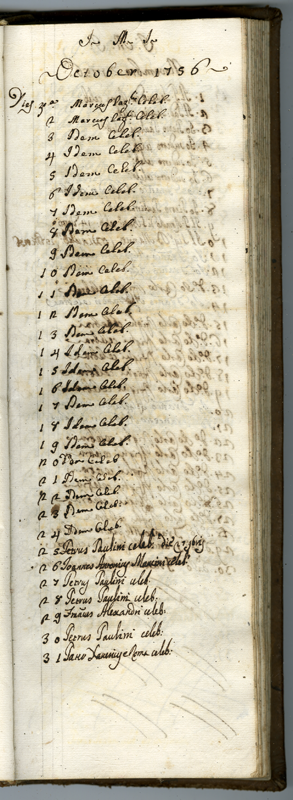 October 1756
Dies
2 Marcus Celeb.
3 Idem Celeb.
4 Idem Celeb.
5 Idem Celeb.
6 Idem Celeb.
7 Idem Celeb.
8 Idem Celeb.
9 Idem Celeb.
10 Idem Celeb.
11 Idem Celeb.
12 Idem Celeb.
13 Idem Celeb.
14 Idem Celeb.
15 Idem Celeb.
16 Idem Celeb.
17 Idem Celeb.
18 Idem Celeb.
19 Idem Celeb.
20 Idem Celeb
21 Idem Celeb.
22 Idem Celeb.
23 Idem Celeb.
24 Idem Celeb
25 Petrus Paulini celeb.
26 Joannes Antonius celeb.
27 Petrus Paulini celeb.
28 Petrus Paulini celeb.
29 Alexandri celeb.
30 Petrus Paulini celeb.
31 celeb.